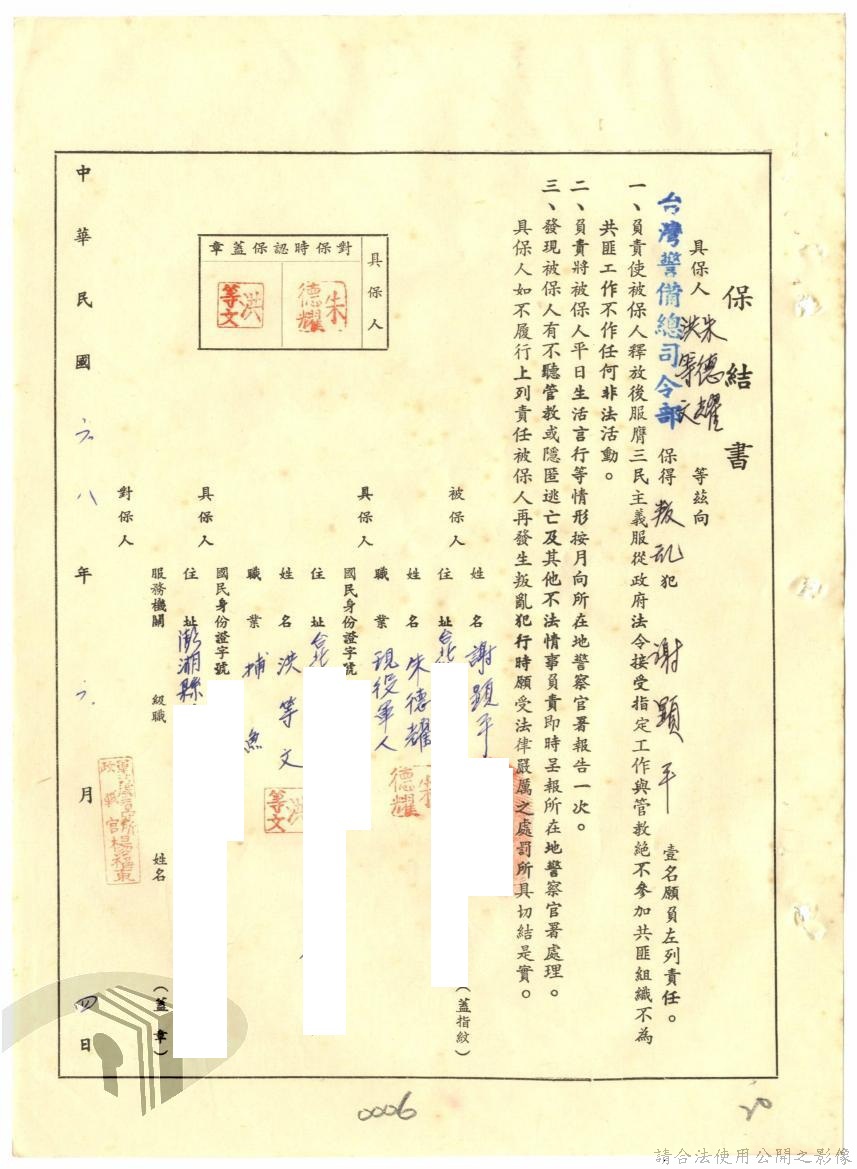 保結書
具保人 朱德耀 洪等文 等茲向
台灣警備總司令部 保得 叛乱 犯 謝顕平 壹名願負左列責任。
一、負責使被保人釋放後服膺三民主義服從政府法令接受指定工作與管教絕不參加共匪組織不為
共匪工作不作任何非法活動。
二、負責將被保人平日生活言行等情形按月向所在地警察官署報告一次。
三、發現被保人有不聽管教或隱匿逃亡及其他不法情事負責即時呈報所在地警察官署處理。
具保人如不履行上列責任被保人再發生叛亂犯行時願受法律嚴厲之處罰所具切結是實。
具保人
對保時認保蓋章
朱德耀
洪等文
被保人 姓名 謝顕平
住址 台北 (蓋指紋)
具保人 姓名 朱德耀
朱德耀
職業 現役軍人
國民身份證字號
住址 台北
具保人 姓名 洪等文
洪等文
職業 捕魚
國民身份證字號
住址 澎湖縣
對保人 服務機關 級職 姓名 (蓋章)
中華民國六八年六月四日
0006
20
請合法使用公開之影像